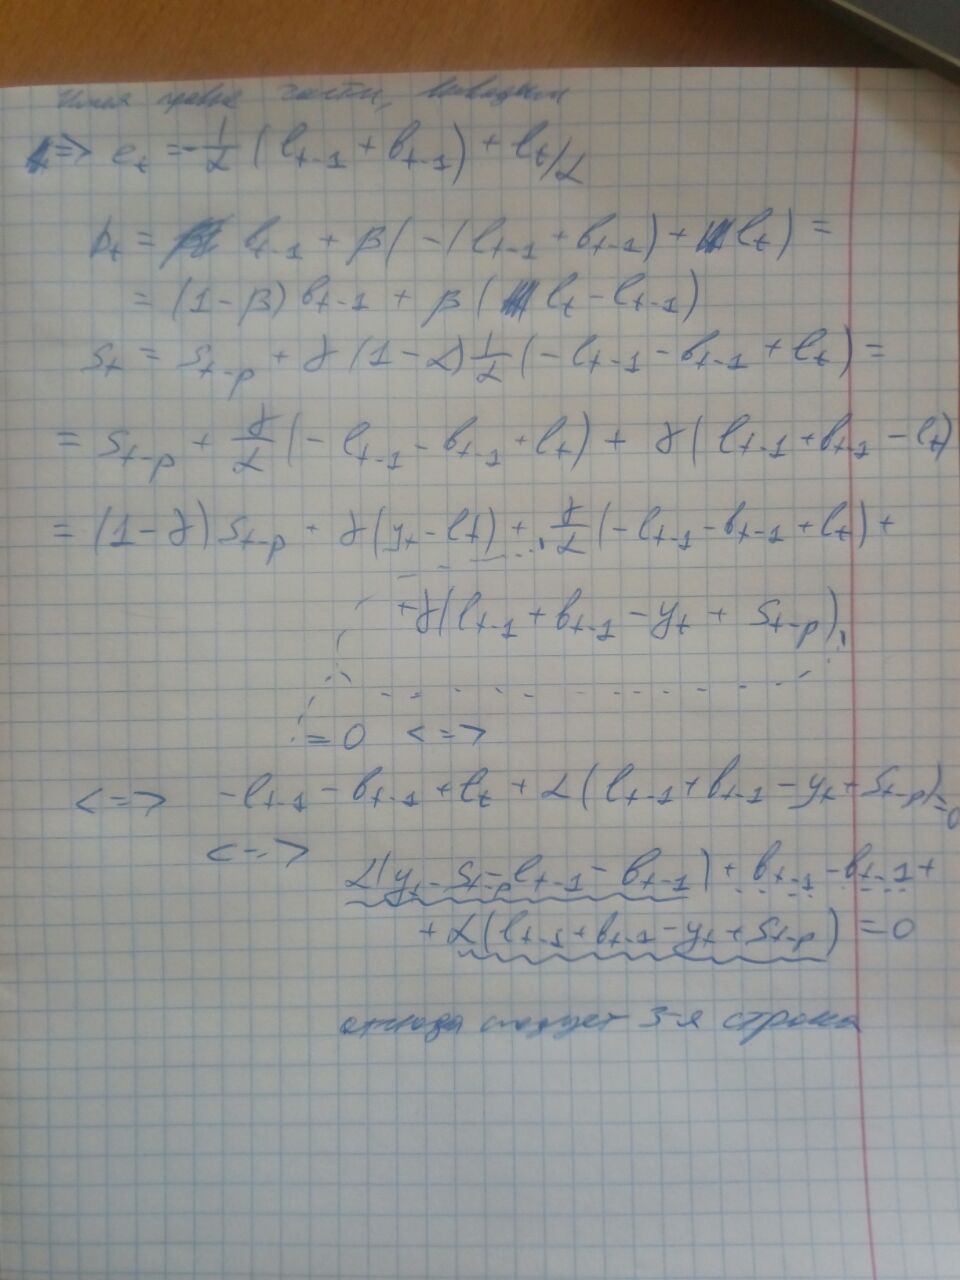 правые части, выводим
=> e_t = -1/α (l_{t-1} + b_{t-1}) + l_t/α
b_t = b_{t-1} + β(-(l_{t-1} + b_{t-1}) + l_t) =
= (1-β) b_{t-1} + β(l_t - l_{t-1})
s_t = s_{t-p} + γ(1-α) 1/α (-l_{t-1} - b_{t-1} + l_t) =
= s_{t-p} + γ/α (-l_{t-1} - b_{t-1} + l_t) + γ(l_{t-1} + b_{t-1} - l_t)
= (1-γ) s_{t-p} + γ(y_t - l_t) + γ/α (-l_{t-1} - b_{t-1} + l_t) +
+ γ(l_{t-1} + b_{t-1} - y_t + s_{t-p})
= 0 <=>
<=> -l_{t-1} - b_{t-1} + l_t + α(l_{t-1} + b_{t-1} - y_t + s_{t-p}) = 0
<=>
α(y_t - s_{t-p} - l_{t-1} - b_{t-1}) + b_{t-1} - b_{t-1} +
+ α(l_{t-1} + b_{t-1} - y_t + s_{t-p}) = 0
отсюда следует 3-я строка